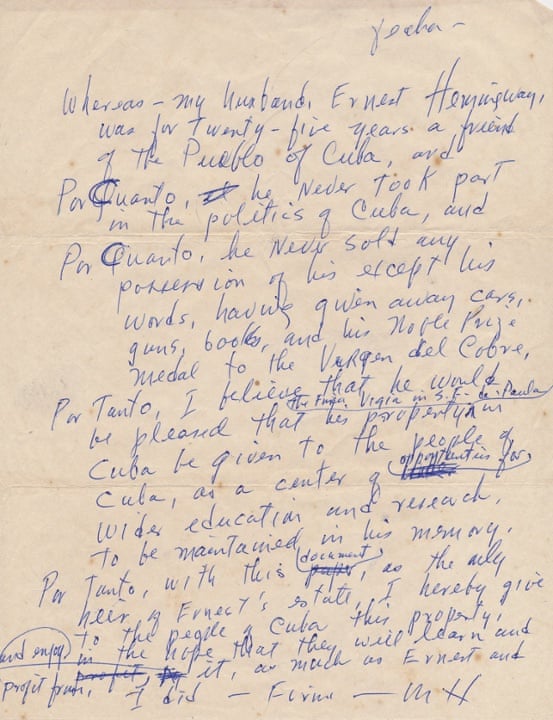 fecha —
Whereas — my husband, Ernest Hemingway,
was for twenty-five years a friend
of the Pueblo of Cuba, and
Por Cuanto, he never took part
in the politics of Cuba, and
Por Cuanto, he never sold any
possession of his except his
words, having given away cars,
guns, books, and his Noble Prize
medal to the Virgen del Cobre,
Por Tanto, I believe that he would
the Finca Vigia in S. F. de Paula
be pleased that his property in
Cuba be given to the people of
Cuba, as a center of opportunities for
wider education and research,
to be maintained in his memory.
document
Por Tanto, with this paper, as the only
heir of Ernest's estate, I hereby give
to the people of Cuba this property,
in the hope that they will learn and
and enjoy profit, it, as much as Ernest and
profit from, I did — Firma — M H